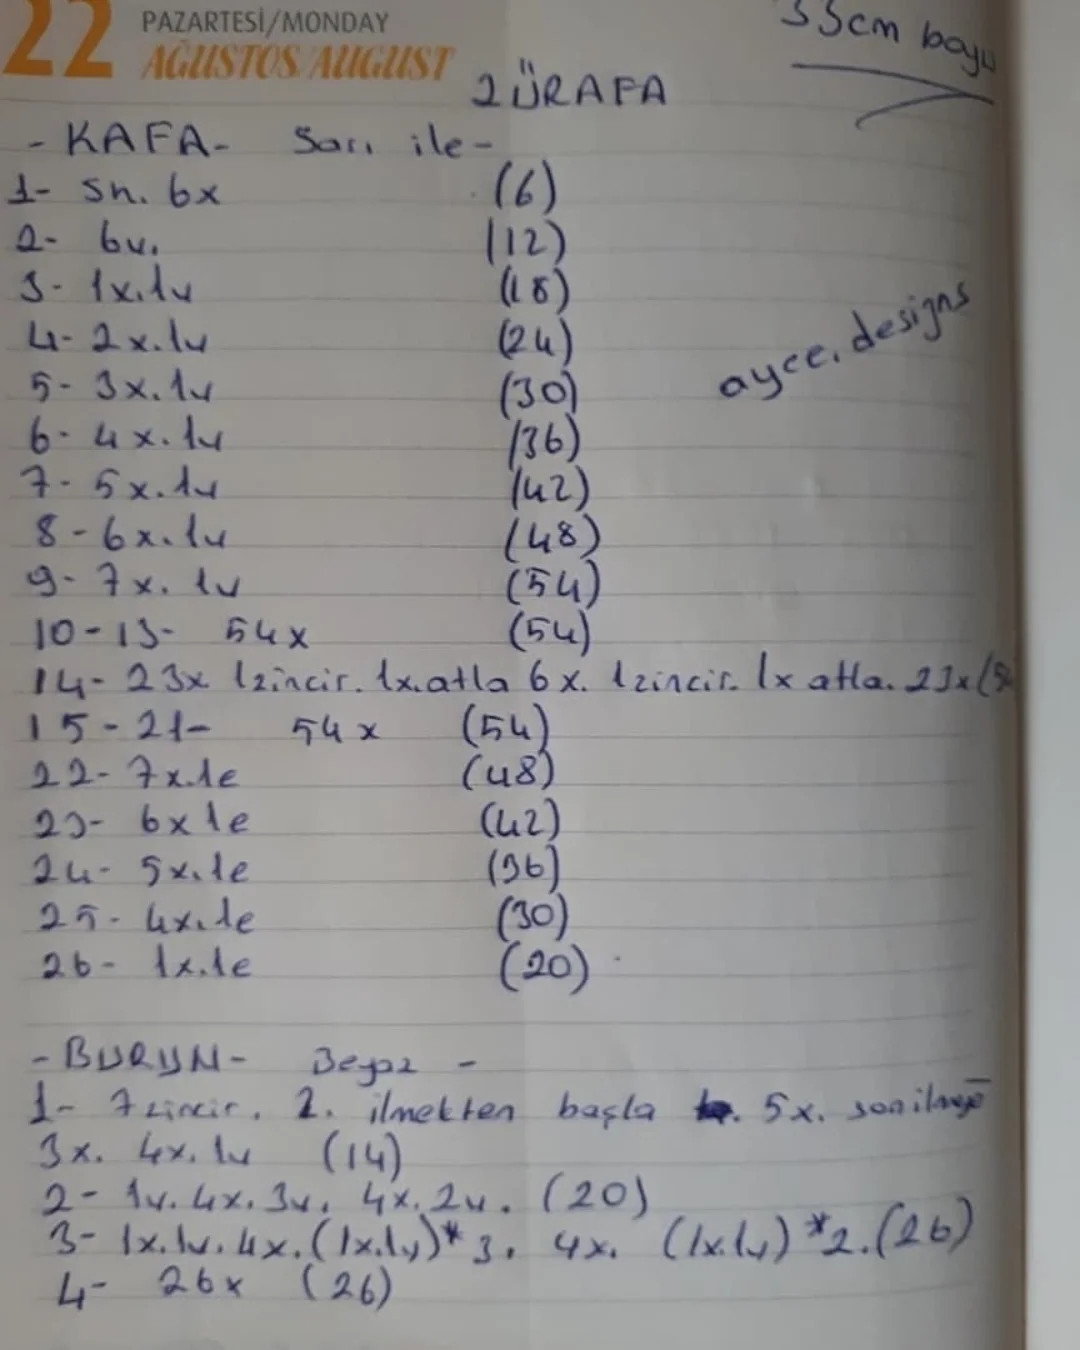 22 PAZARTESİ/MONDAY
AĞUSTOS/AUGUST
33cm boyu
ZÜRAFA
- KAFA- Sarı ile -
1- sh. 6x (6)
2- 6v. (12)
3- 1x.1v (18)
4- 2x.1v (24)
5- 3x.1v (30)
6- 4x.1v (36)
7- 5x.1v (42)
8- 6x.1v (48)
9- 7x.1v (54)
10-13- 54x (54)
ayce.designs
14- 23x 1zincir. 1x.atla 6x. 1zincir. 1x atla. 23x (54
15-21- 54x (54)
22- 7x.1e (48)
23- 6x1e (42)
24- 5x.1e (36)
25- 4x.1e (30)
26- 1x.1e (20)
- BURUN- Beyaz -
1- 7zincir. 2. ilmekten başla 5x. son ilmeğe
3x. 4x.1v (14)
2- 1v. 4x. 3v. 4x. 2v. (20)
3- 1x.1v. 4x. (1x.1v)*3. 4x. (1x.1v)*2. (26)
4- 26x (26)